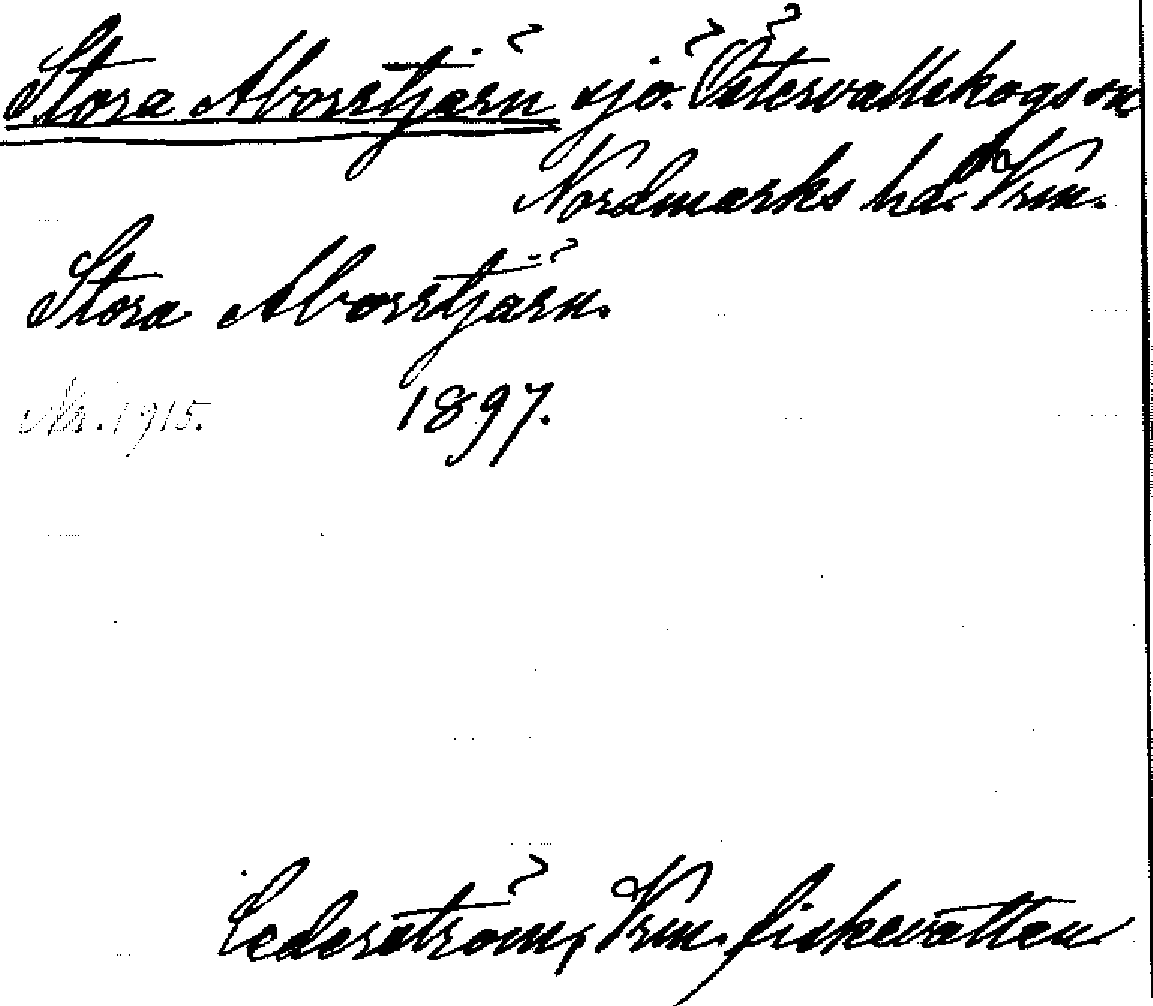 Stora Aborrtjärn sjö. Östervallskogs sn
Nordmarks hd. Vrm.
Stora Aborrtjärn.
1897.
Cederström, Vrm. fiskevatten